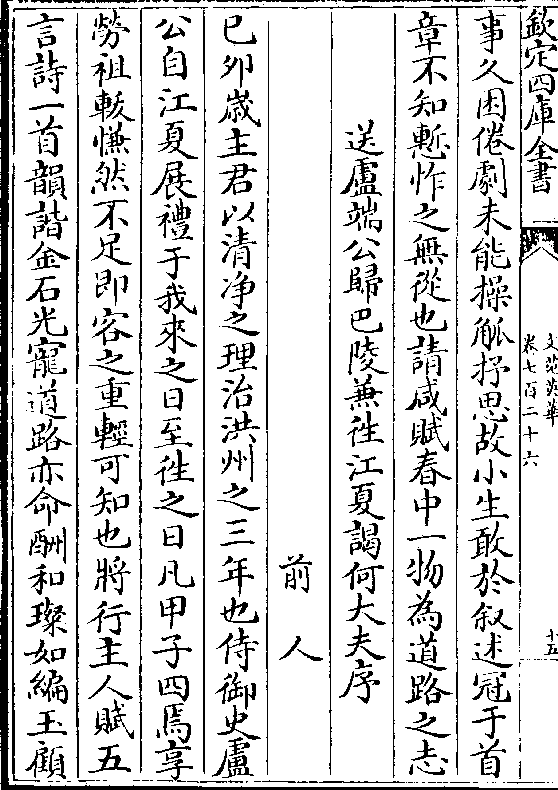 欽定四庫全書
文苑英華
卷七百二十六
十五
事久困倦劇未能操觚抒思故小生敢於叙述冠于首
章不知慙怍之無從也請咸賦春中一物為道路之志
送盧端公歸巴陵兼徃江夏謁何大夫序
前人
已夘歳主君以清净之理治洪州之三年也侍御史盧
公自江夏展禮于我來之日至徃之日凡甲子四焉享
勞祖載慊然不足即客之重輕可知也將行主人賦五
言詩一首韻諧金石光寵道路亦命酬和璨如編玉顧